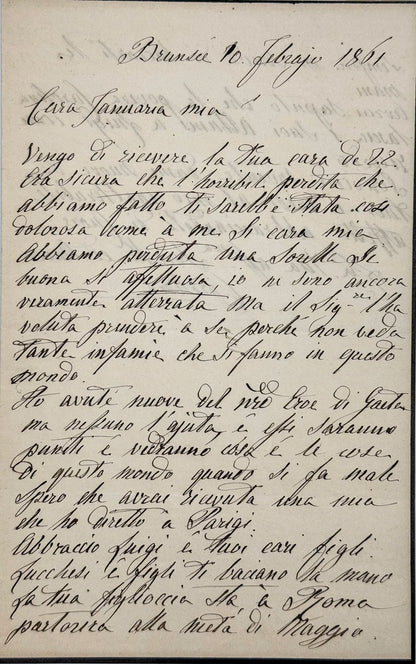 Brunsée 10. Febrajo 1861
Cara Januaria mia
Vengo di ricevere la tua cara de 22
Era sicura che l'horribile perdita che
abbiamo fatto ti sarebbe stata cosi
dolorosa come à me si cara mia
Abbiamo perduta una Sorella si
buona si affettuosa, io ne sono ancora
veramente atterrata Ma il Sig.re l'ha
voluta prendere à se, perché non veda
tante infamie che si fanno in questo
mondo.
Ho avute nuove del nro Eroe di Gaeta
ma nessuno l'ajuta, e essi saranno
puniti è vedranno cosa é le cose
di questo mondo quando si fa male
Spero che avrai ricevuta una mia
che ho diretto à Parigi.
Abbraccio Luigi é tuoi cari figli.
Lucchesi é figli ti baciano la mano
La tua figlioccia stà à Roma
partorira alla metà di Maggio.